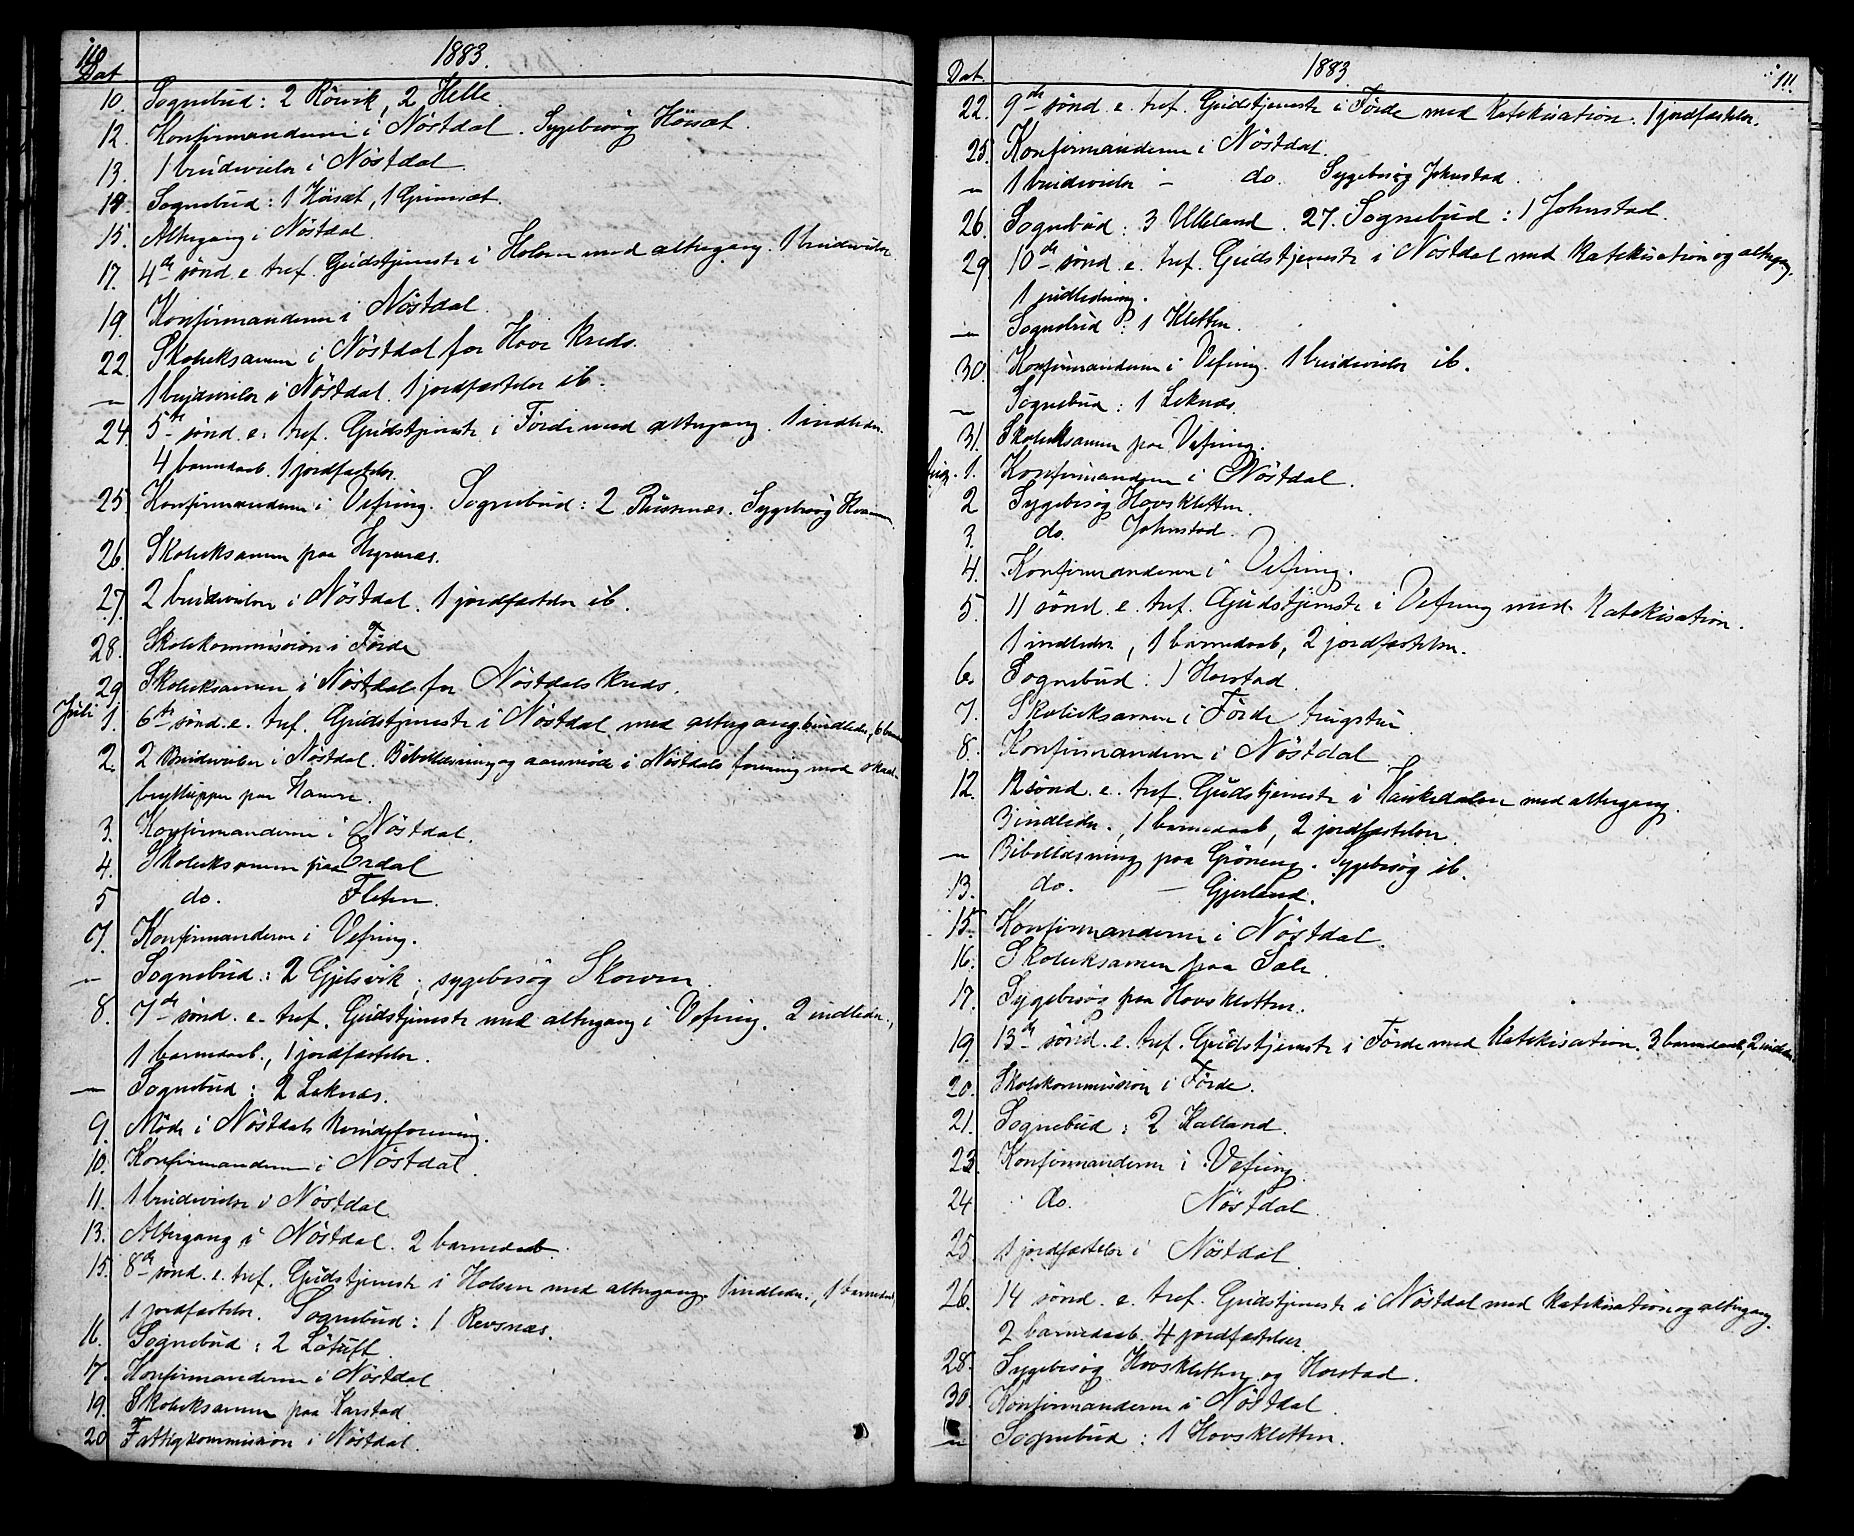 110
1883.
Dat
10. Sognebud: 2 Rörvik, 2 Helle
12. Konfirmanderne i Nöstdal. Sygebesög Höisæt.
13. 1 brudevielse i Nöstdal.
14. Sognebud: 1 Höisæt, 1 Grimsæt.
15. Altergang i Nöstdal.
17. 4de sönd. e. tref. Gudstjeneste i Holsen med altergang. 1 brudevielse
19. Konfirmanderne i Nöstdal.
22. Skoleeksamen i Nöstdal for Hove kreds.
— 1 brudevielse i Nöstdal. 1 jordfæstelse ib.
24. 5te sönd. e. tref. Gudstjeneste i Förde med altergang. 1 indledn.
4 barnedaab. 1 jordfæstelse.
25. Konfirmanderne i Vefring. Sognebud: 2 Russenæs. Sygebesög Kvamme
26. Skoleeksamen paa Hegrenæs.
27. 2 brudevielser i Nöstdal. 1 jordfæstelse ib.
28. Skolekommission i Förde
29. Skoleeksamen i Nöstdal for Nöstdals kreds.
Juli 1. 6te sönd. e. tref. Gudstjeneste i Nöstdal med altergang. 6 indledn., 6 barne
2. 2 Brudevielser i Nöstdal. Bibellæsning og aarsmöde i Nöstdals forening mod skaal-
bryllupper paa Hamre.
3. Konfirmanderne i Nöstdal.
4. Skoleeksamen paa Erdal
5 do. Fleten.
7. Konfirmanderne i Vefring.
— Sognebud: 2 Gjelsvik; sygebesög Skorven.
8. 7de sönd. e. tref. Gudstjeneste med altergang i Vefring. 2 indledn.,
1 barnedaab., 1 jordfæstelse.
— Sognebud: 2 Leknæs.
9. Möde i Nöstdals kvindeforening.
10. Konfirmanderne i Nöstdal.
11. 1 brudevielse i Nöstdal
13. Altergang i Nöstdal. 2 barnedaab.
15. 8de sönd. e. tref. Gudstjeneste i Holsen med altergang. 1 indledn., 1 barnedaab,
1 jordfæstelse. Sognebud: 1 Revsnæs.
16. Sognebud: 2 Lötuft.
17. Konfirmanderne i Nöstdal
19. Skoleeksamen paa Karstad.
20 Fattigkommission i Nöstdal.
Dat. 1883 111.
22. 9de sönd. e. tref. Gudstjeneste i Förde med katekisation. 1 jordfæstelse.
25. Konfirmanderne i Nöstdal.
— 1 brudevielse — do. Sygebesög Johnstad.
26. Sognebud: 3 Ulleland. 27. Sognebud: 1 Johnstad.
29. 10de sönd. e. tref. Gudstjeneste i Nöstdal med katekisation og altergang.
1 indledning.
— Sognebud: 1 Kletten.
30. Konfirmanderne i Vefring. 1 brudevielse ib.
— Sognebud: 1 Leknæs.
31. Skoleeksamen paa Vefring.
1. Konfirmanderne i Nöstdal.
2 Sygebesög Hovskletten.
3. do. Johnstad.
4. Konfirmanderne i Vefring.
5 11 sönd. e. tref. Gudstjeneste i Vefring med katekisation.
1 indledn, 1 barnedaab, 2 jordfæstelser.
6. Sognebud: 1 Horstad.
7. Skoleeksamen i Förde tingstue
8. Konfirmanderne i Nöstdal
12. 12 sönd. e. tref. Gudstjeneste i Haukedalen med altergang.
3 indledn., 1 barnedaab, 2 jordfæstelser.
— Bibellæsning paa Gröneng. Sygebesög ib.
13. do. — Gjerland.
15. Konfirmanderne i Nöstdal.
16. Skoleeksamen paa Sæle.
17. Sygebesög paa Hovskletten.
19. 13de sönd. e. tref. Gudstjeneste i Förde med katekisation. 3 barnedaab, 2 indledn
20. Skolekommission i Förde.
21. Sognebud: 2 Kalland.
23. Konfirmanderne i Vefring.
24 do. Nöstdal.
25 1 jordfæstelse i Nöstdal
26. 14 sönd. e. tref. Gudstjeneste i Nöstdal med katekisation og altergang.
2 barnedaab. 4 jordfæstelser.
28. Sygebesög Hovskletten og Horstad.
30. Konfirmanderne i Nöstdal
— Sognebud: 1 Hovskletten.